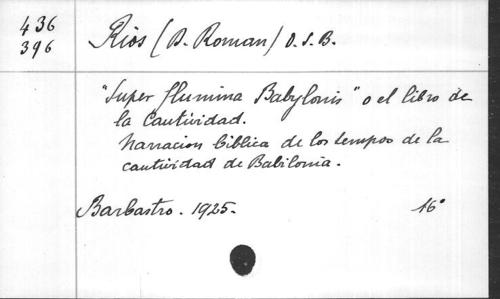 436
396
Rios (D. Roman) O.S.B.
"Super flumina Babylonis" o el libro de
la Cautividad.
Narracion biblica de los tempos de la
cautividad de Babilonia.
Barbastro. 1925.
16°